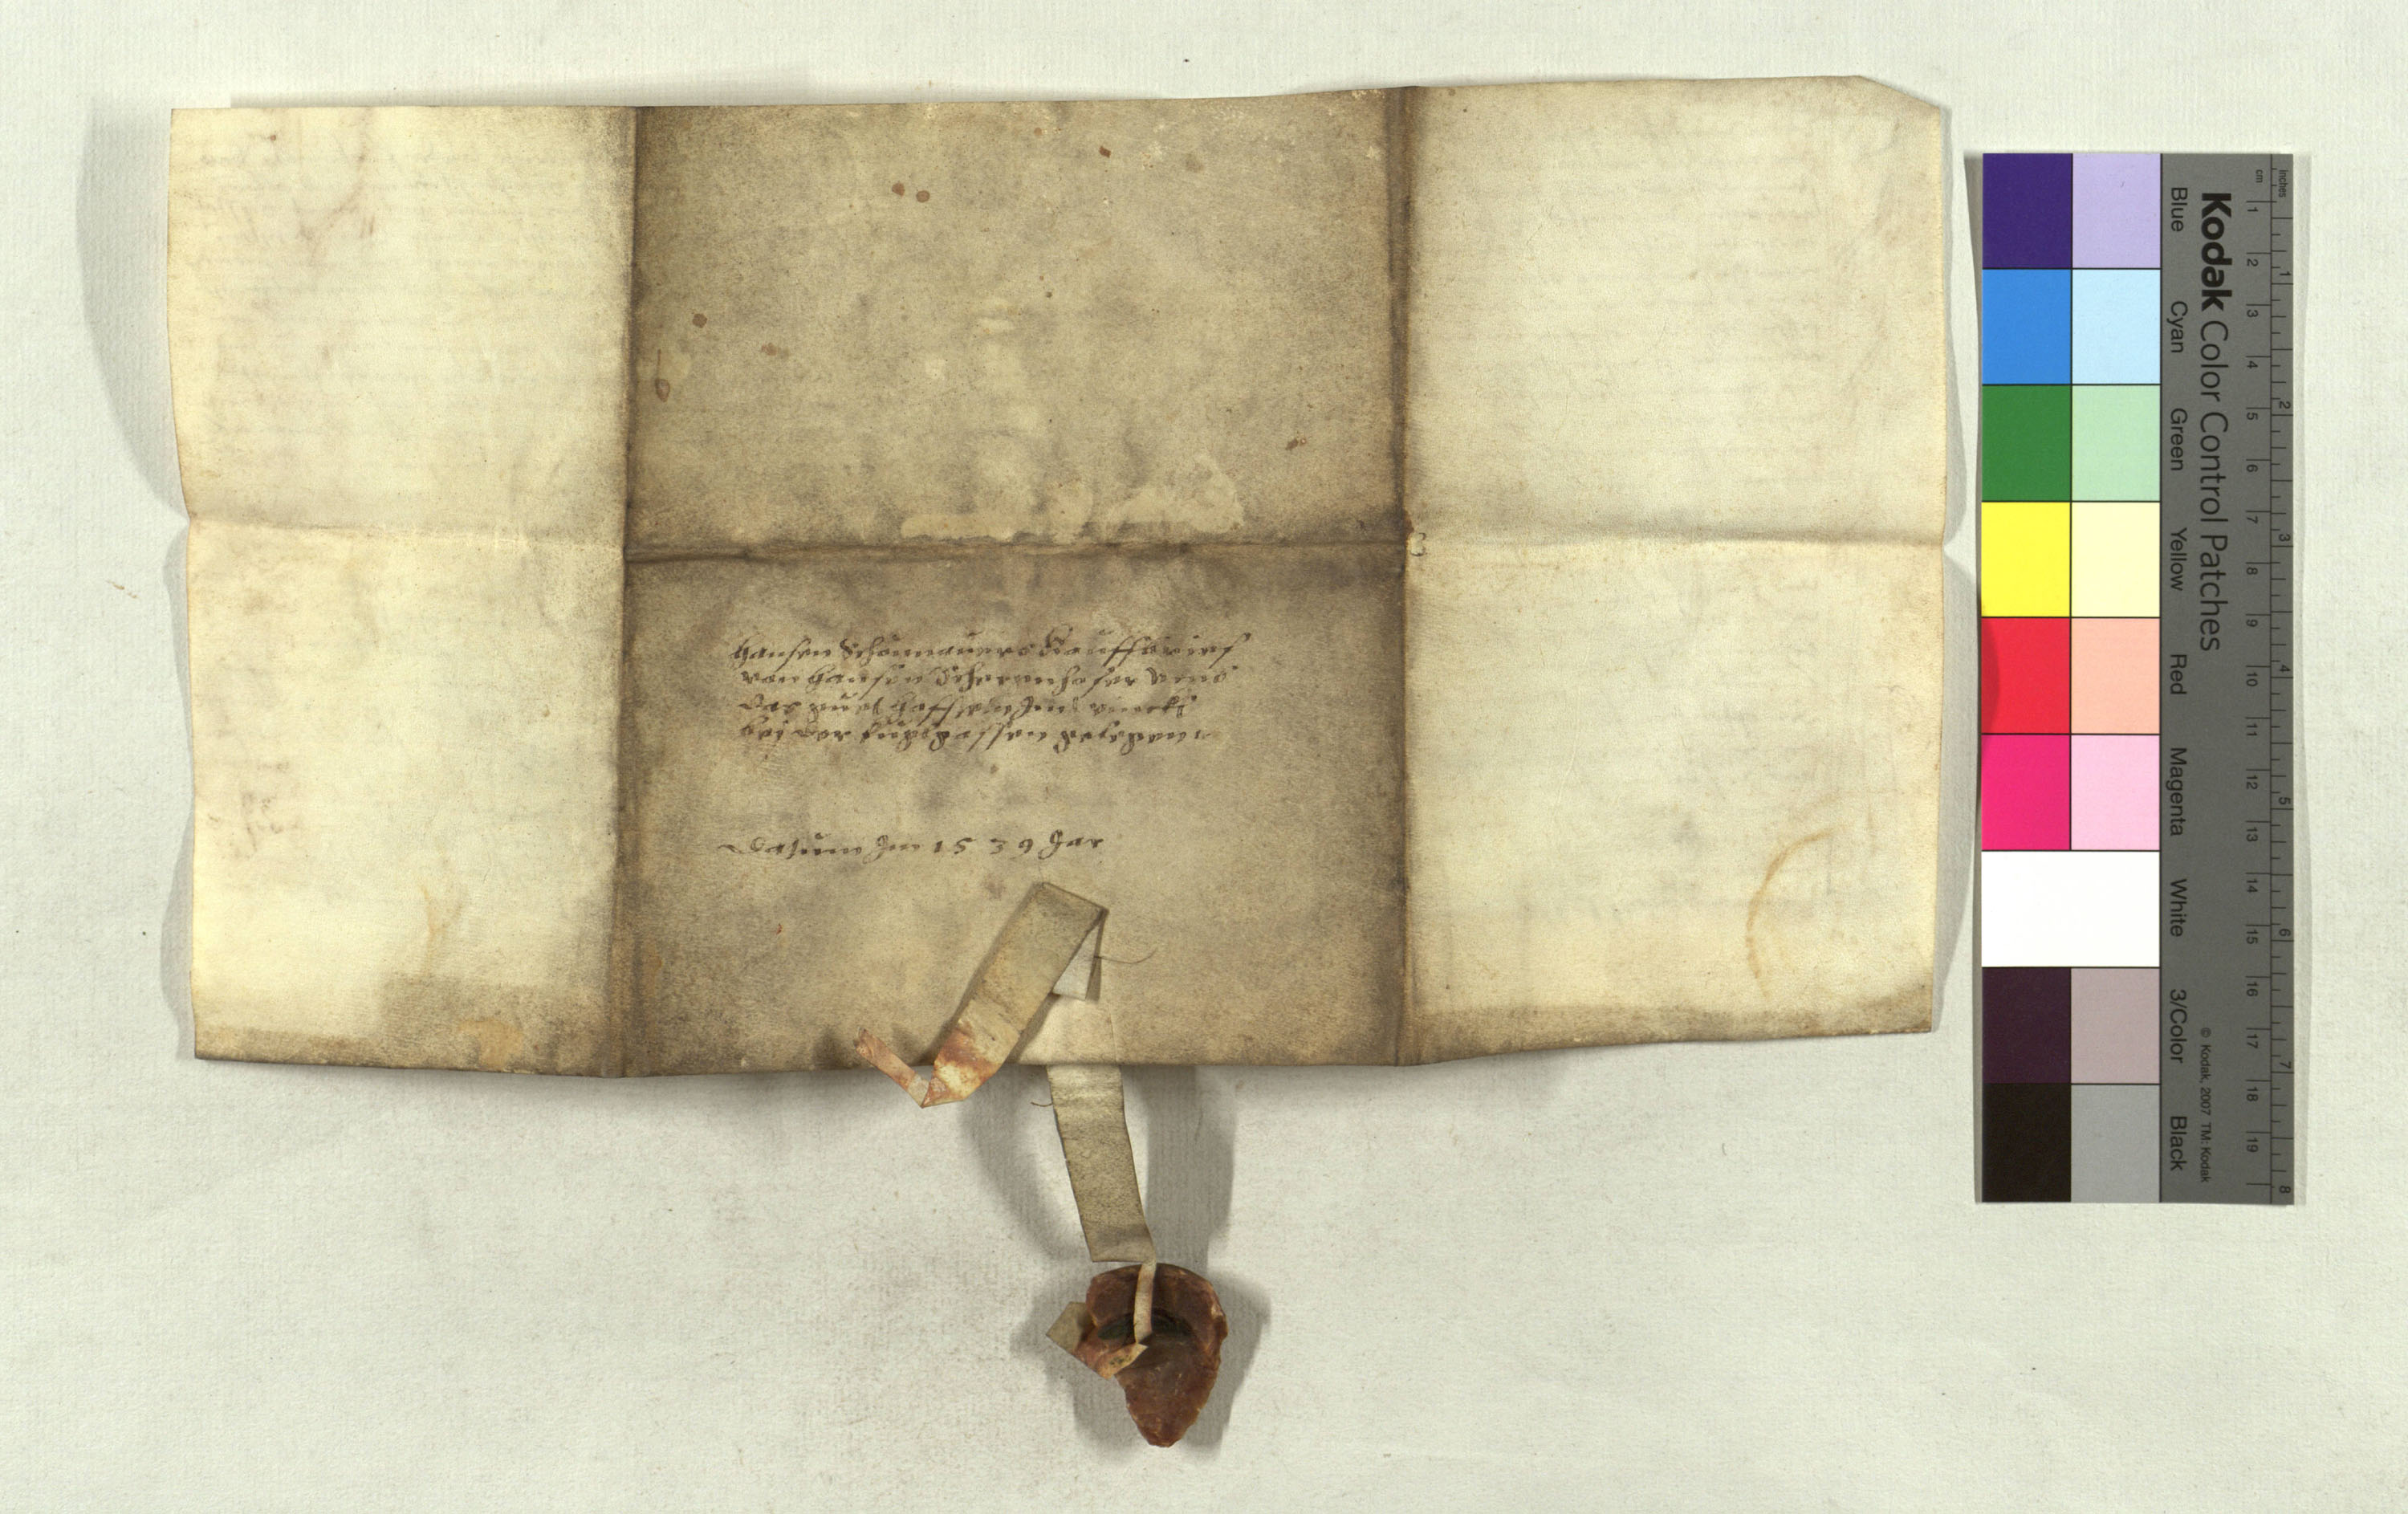 Hansen Schönnauers Kauffbrief
von Hansen Schermhofer
das guetl
bei der gassen gelegenn
Datum Im 1539 Jar
Kodak Color Control Patches
Blue Cyan Green Yellow Red Magenta White 3/Color Black
© Kodak, 2007 TM: Kodak
cm 1 2 3 4 5 6 7 8 9 10 11 12 13 14 15 16 17 18 19
Inches 1 2 3 4 5 6 7 8